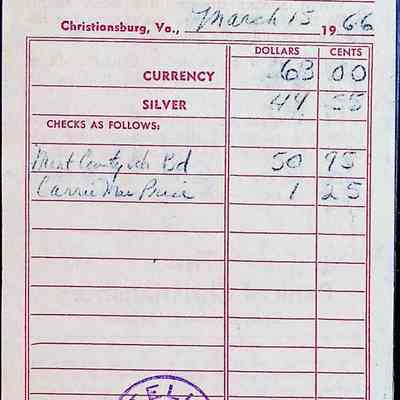 Christiansburg, Va., March 15 1966
DOLLARS CENTS
CURRENCY 63 00
SILVER 44 55
CHECKS AS FOLLOWS:
Mont County Sch Bd 50 95
Carrie Mae Price 1 25